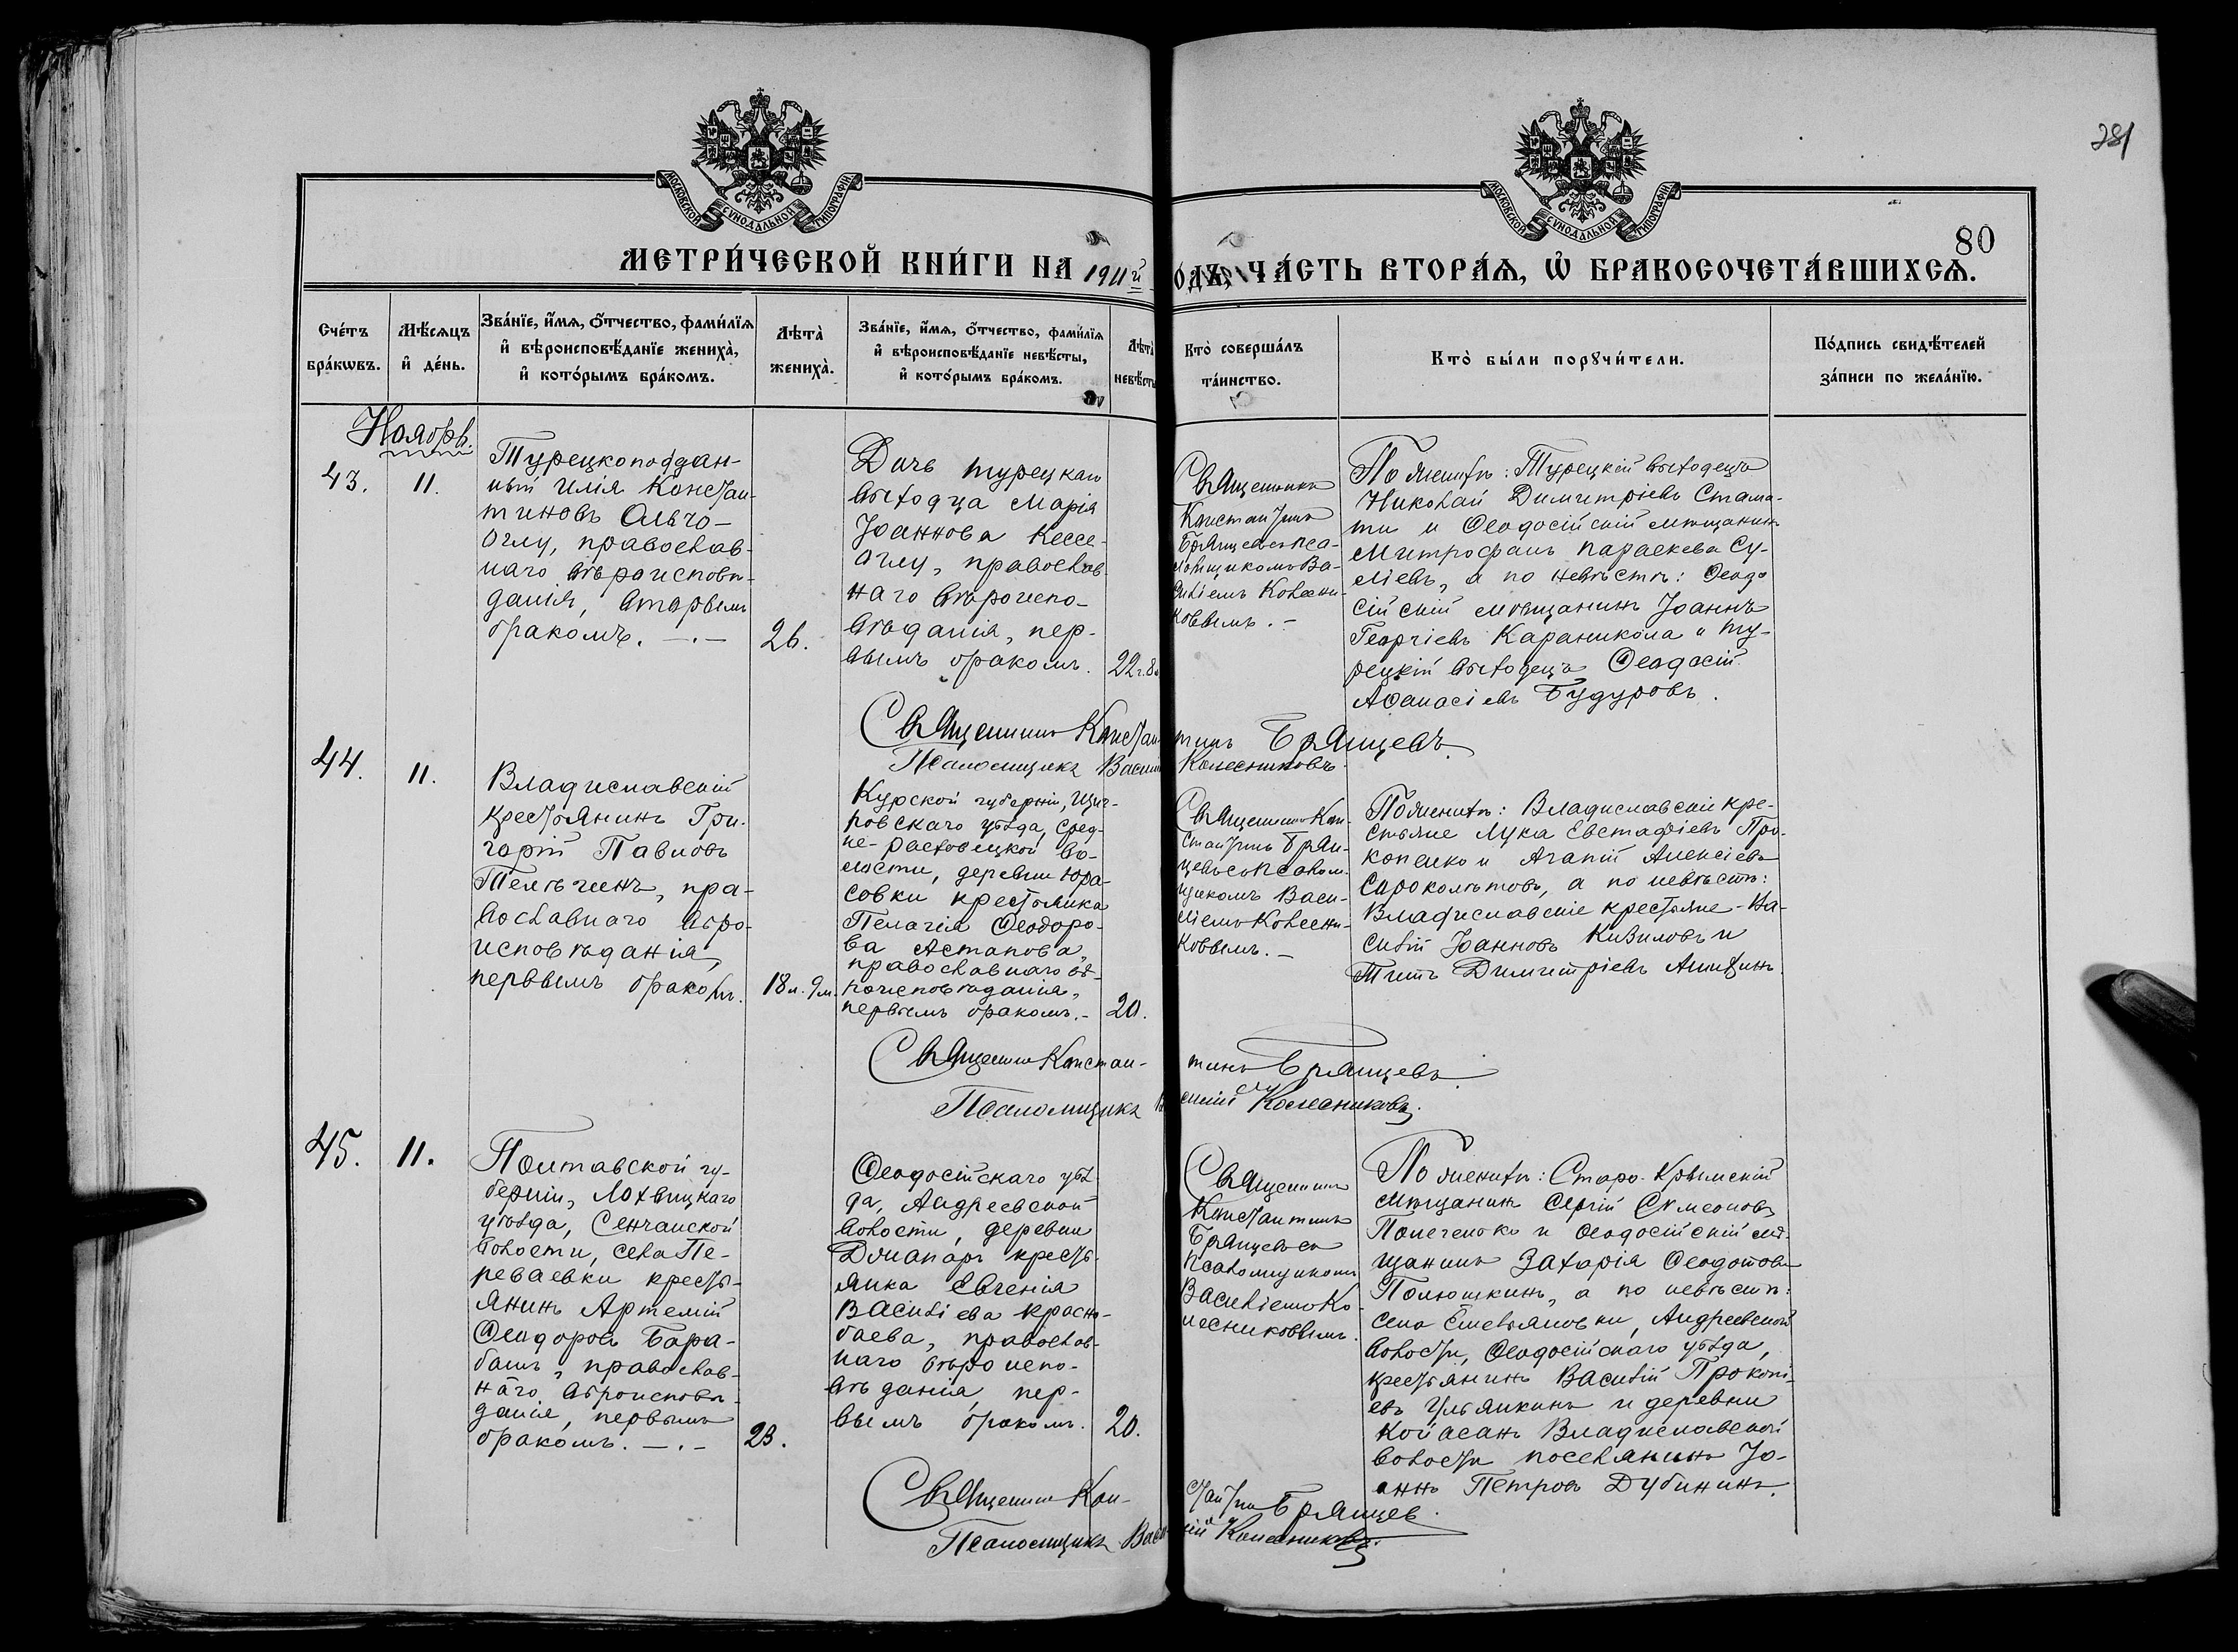 281
80
МОСКОВСКОЙ СѴНОДАЛЬНОЙ ТИПОГРАФІИ
МОСКОВСКОЙ СѴНОДАЛЬНОЙ ТИПОГРАФІИ
МЕТРИ́ЧЕСКОЙ КНИ́ГИ НА 1911й
ОДЪ, ЧА́СТЬ ВТОРА́Ѧ, Ѽ БРАКОСОЧЕТА́ВШИХСѦ.
Сче́тъ
бра́кѡвъ.
Мѣ́сѧцъ
и҆ де́нь.
Зва́нїе, и҆́мѧ, ѻ҆́тчество, фами́лїѧ
и҆ вѣроисповѣ́данїе жениха̀,
и҆ кото́рымъ бра́комъ.
Лѣта̀
жениха̀.
Зва́нїе, и҆́мѧ, ѻ҆́тчество, фами́лїѧ
и҆ вѣроисповѣ́данїе невѣ́сты,
и҆ кото́рымъ бра́комъ.
Лѣта̀
невѣ́сты
Кто̀ соверша́лъ
та́инство.
Кто̀ бы́ли порꙋчи́тели.
По́дпись свидѣ́телей
за́писи по жела́нїю.
Ноябрь.
43.
11.
Турецкоподдан-
ный Илія Констан-
тиновъ Альчо-
Оглу, православ-
наго вѣроисповѣ-
данія, вторымъ
бракомъ. —.—
26.
Дочь турецкаго
выходца Марія
Іоаннова Кессе-
Оглу, православ-
наго вѣроиспо-
вѣданія, пер-
вымъ бракомъ.
22 г. 8
Священникъ
Константинъ
Брянцевъ съ пса-
ломщикомъ Ва-
силіемъ Колесни-
ковымъ. —
По женихѣ: Турецкій выходецъ
Николай Димитріевъ Стама-
ти и Ѳеодосійскій мѣщанинъ
Митрофанъ Параскева Су-
ліевъ, а по невѣстѣ: Ѳеодо
сійскій мѣщанинъ Іоаннъ
Георгіевъ Караникола и ту-
рецкій выходецъ Ѳеодосій
Аѳанасіевъ Будуровъ.
Священникъ Констан-
тинъ Брянцевъ
Псаломщикъ Васил
Колесниковъ.
44.
11.
Владиславскій
крестьянинъ Гри-
горій Павловъ
Телѣгинъ, пра-
вославнаго вѣро-
исповѣданія,
первымъ бракомъ.
18 л. 9 м.
Курской губерніи, Щиг-
ровскаго уѣзда, Сред-
не-Расховецкой во-
лости, деревни Юра-
совки крестьянка
Пелагія Ѳеодоро-
ва Астапова,
православнаго вѣ-
роисповѣданія,
первымъ бракомъ. —
20.
Священникъ Кон-
стантинъ Брян-
цевъ съ псалом-
щикомъ Васи-
ліемъ Колесни-
ковымъ. —
По женихѣ: Владиславскіе кре-
стьяне Лука Евстафіевъ Про-
копенко и Агапій Алексіевъ
Сороколѣтовъ, а по невѣстѣ:
Владиславскіе крестьяне - Ва-
силій Іоанновъ Кизиловъ и
Титъ Димитріевъ
Священникъ Констан-
тинъ Брянцевъ
Псаломщикъ
силій Колесниковъ.
45.
11.
Полтавской гу-
берніи, Лохвицкаго
уѣзда, Сенчанской
волости, села Пе-
реваевки кресть-
янинъ Артемій
Ѳеодоровъ Бара-
башъ, православ-
наго вѣроисповѣ-
данія, первымъ
бракомъ. —.—
23.
Ѳеодосійскаго уѣз-
да, Андреевской
волости, деревни
Джапаръ кресть-
янка Евгенія
Василіева Красно-
баева, православ-
наго вѣроиспо-
вѣданія, пер-
вымъ бракомъ.
20.
Священникъ
Константинъ
Брянцевъ съ
псаломщикомъ
Василіемъ Ко-
лесниковымъ.
По женихѣ: Старо-Крымскій
мѣщанинъ Сергій Сѵмеоновъ
Полегенько и Ѳеодосійскій мѣ-
щанинъ Захарія Ѳеодотовъ
Полюшкинъ, а по невѣстѣ:
села Емельяновки, Андреевской
волости, Ѳеодосійскаго уѣзда,
крестьянинъ Василій Прокопі-
евъ Ульянкинъ и деревни
Койасанъ Владиславской
волости поселянинъ Іо-
аннъ Петровъ Дубининъ.
Священникъ Кон-
стантинъ Брянцев
Псаломщикъ Васи-
лій Колесниковъ.